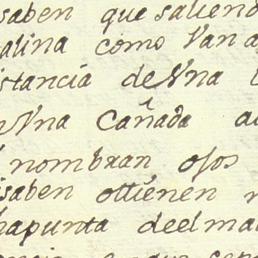 saben que saliend
alina como Van a
istancia deVna l
n Vna Cañada a
nombran ojos
saben ottienen n
apunta deelma